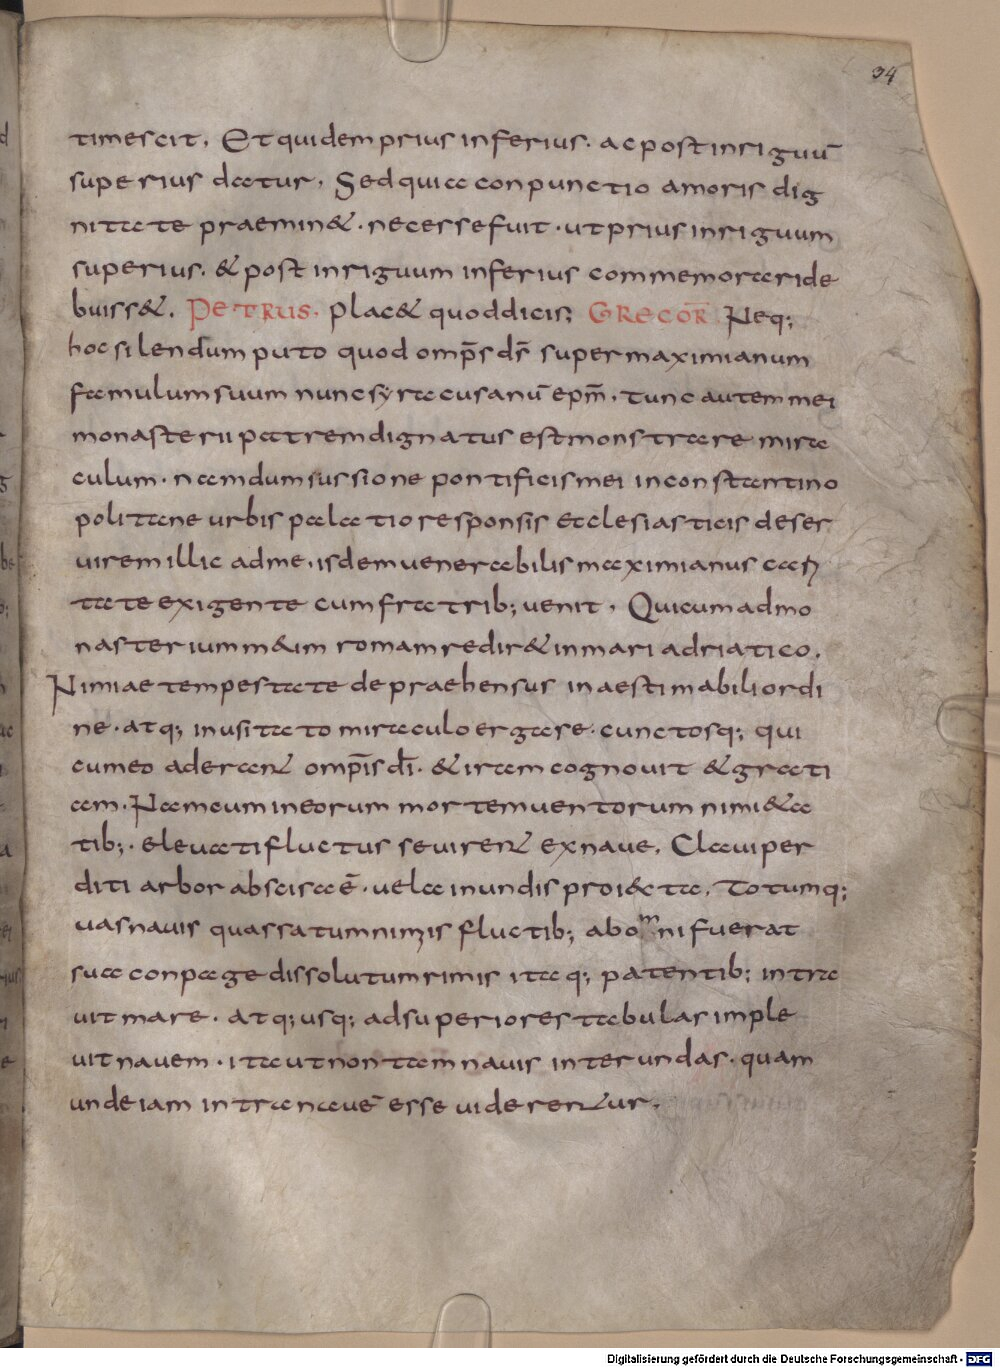 34
timescit. Et quidem prius inferius. ac post inriguū
superius datur. Sed quia conpunctio amoris dig
nitate praemin&. necesse fuit. ut prius inriguum
superius. & post inriguum inferius commemorari de
buiss&. PETRUS. Plac& quod dicis; GREGOR̄ Neq;
hoc silendum puto quod omp̄s d̄s super maximianum
famulum suum nunc syracusanū ep̄m. tunc autem mei
monasterii patrem dignatus est monstrare mira
culum. nam dum iussione pontificis mei in constantino
politane urbis palatio responsis ecclesiasticis deser
uirem illic ad me. isdem uenerabilis maximianus cari
tate exigente cum fratrib; uenit. Qui cum ad mo
nasterium m&im romam redir& in mari adriatico.
Nimiae tempestate depraehensus inaestimabili ordi
ne. atq; inusitato miraculo erga se. cunctosq; qui
cum eo aderant omp̄is dī. & iram cognouit & grati
am. Nam cum in eorum mortem uentorum nimi&a
tib;. eleuati fluctus seuirent ex naue. Claui per
diti arbor abscisa ē. uela in undis proi&cta. Totumq;
uas nauis quassatum nimiis fluctib; ab omni fuerat
sua conpage dissolutum rimis itaq; patentib; intra
uit mare. atq; usq; ad superiores tabulas imple
uit nauem. ita ut non tam nauis inter undas. quam
undę iam intra nauē esse uiderentur.
Digitalisierung gefördert durch die Deutsche Forschungsgemeinschaft - DFG